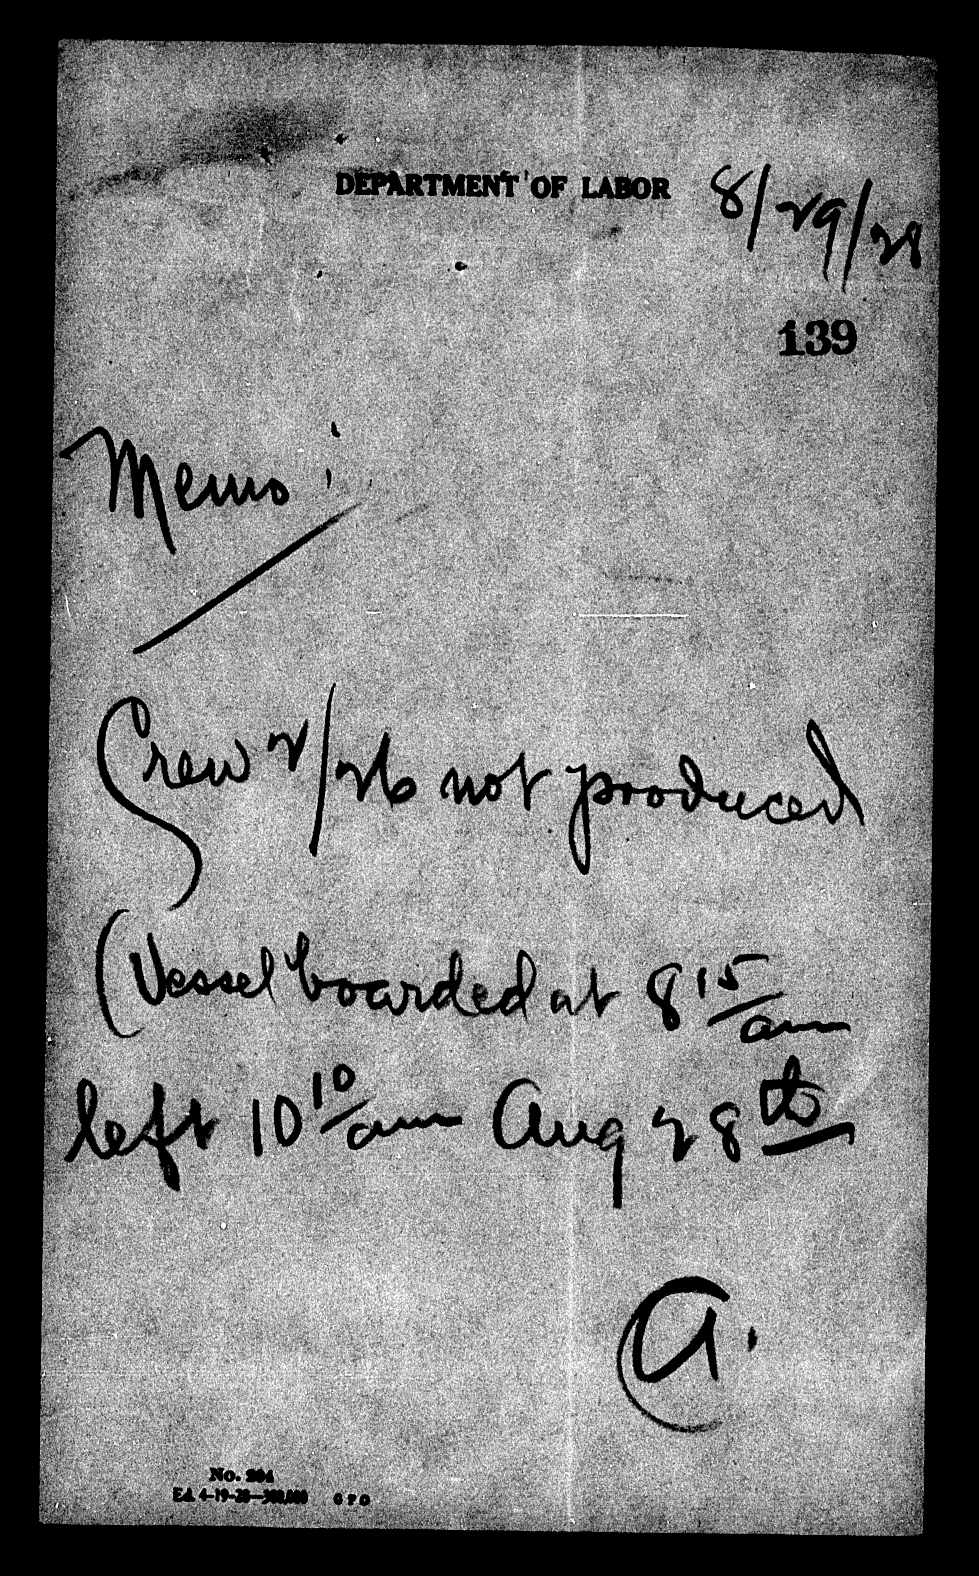 DEPARTMENT OF LABOR 8/29/28
139
Memo:
Crew 2/26 not produced
(Vessel boarded at 8 15/am
left 10 10/am Aug 28th
A.
No.
Ed. 4-19-28—300,000 GPO